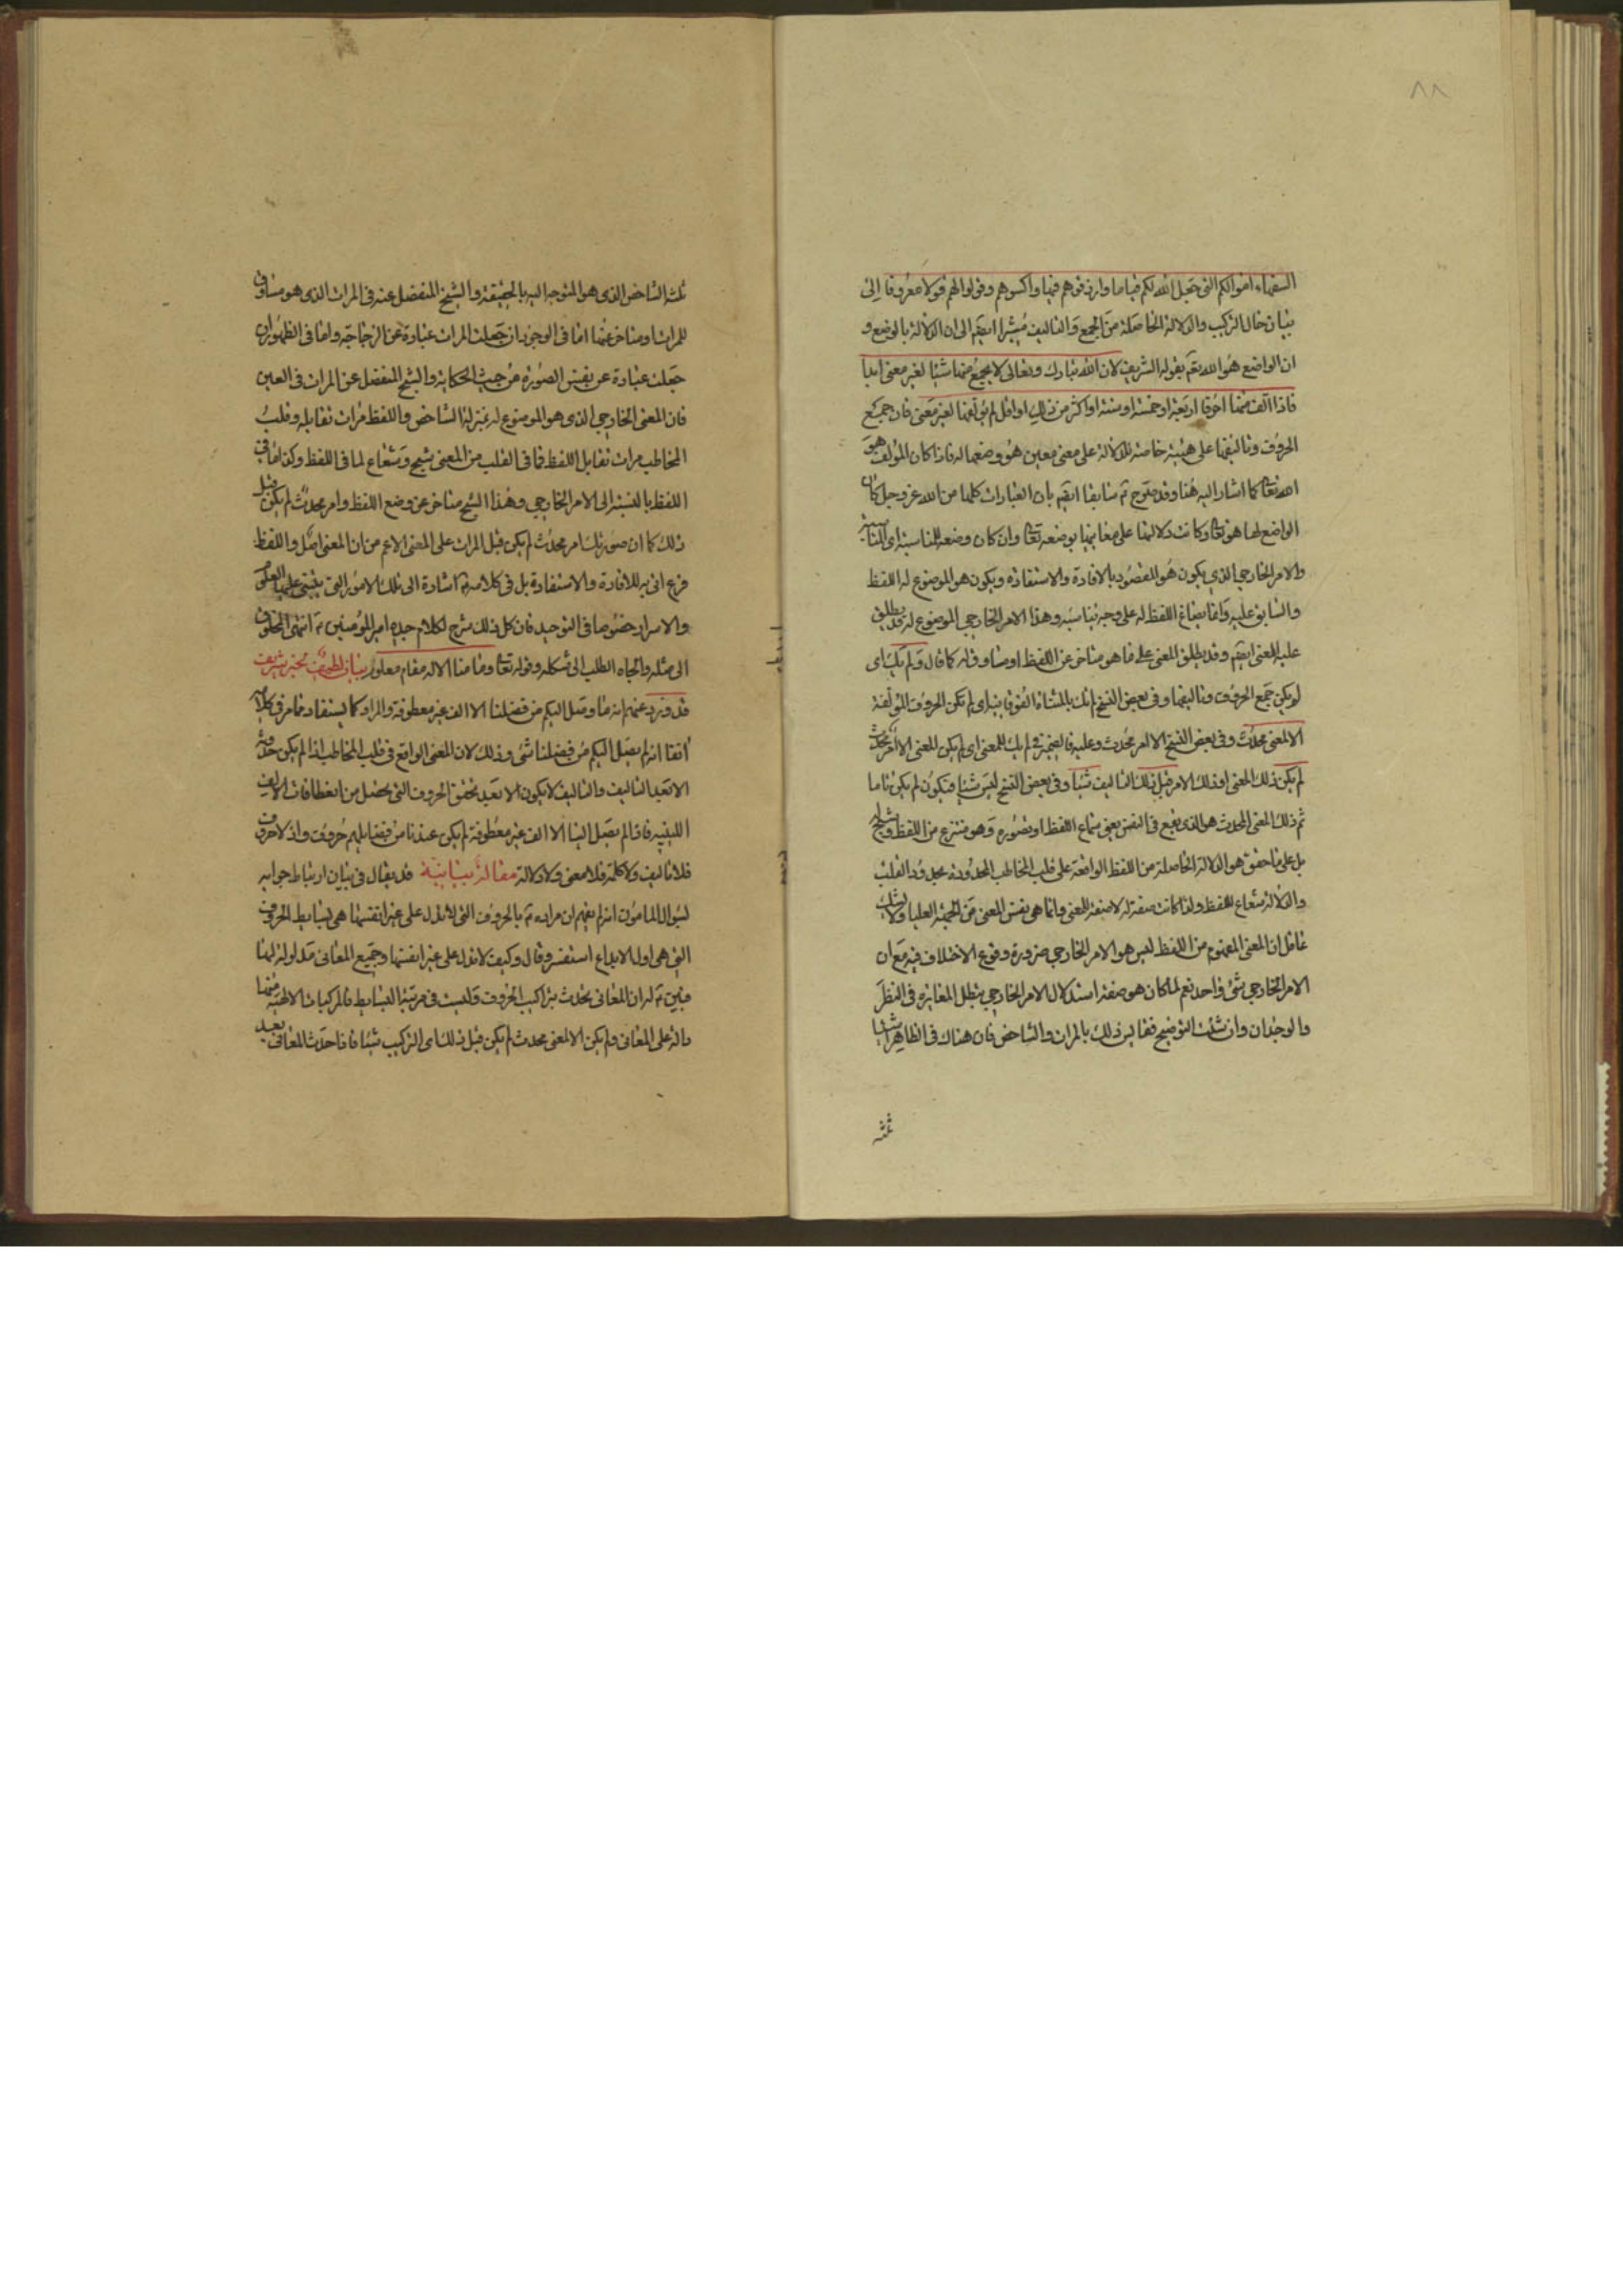 ٨٨
السفهاء اموالكم التى جعل الله لكم قياما وارزقوهم فيها واكسوهم وقولوا لهم قولا معروفا الى
بيان حال التركيب والدلالة الحاصلة من الجمع والتاليف مشيرا ايضم الى ان الدلالة بالوضع و
ان الواضع هو الله تعم بقوله الشريف لان الله تبارك وتعالى لا يجمع منها شيئا لغير معنى ابدا
فاذا الف منها احرفا اربعة او خمسة او ستة او اكثر من ذلك او اقل لم يؤلفها لغير معنى فان جميع
الحروف وتاليفها على هيئة خاصة للدلالة على معنى معين هو وضعها له فاذا كان المؤلف هو
الله تعا كما اشار اليه هنا وقد صرح ثم سابقا ايضم بان العبارات كلها من الله عز وجل كان
الواضع لها هو تعا وكانت دلالتها على معانيها بوضعه تعا وان كان وضعه للمناسبة اى
والامر الخارجي الذي يكون هو المقصود بالافادة والاستفادة ويكون هو الموضوع له اللفظ
والسابق عليه وانما يصاغ اللفظ له على وجه يناسبه وهذا الامر الخارجي الموضوع له قد يطلق
عليه المعنى ايضم وقد يطلق المعنى على ما هو متاخر عن اللفظ او مساوق له كما قال ولم يك اى
لم يكن جمع الحروف وتاليفها وفى بعض النسخ لم تك بالمثناة الفوقانية اى لم تكن الحروف المؤلفة
الا لمعنى محدث وفى بعض النسخ الا لامر محدث وعليه فالضمير فى لم يك للمعنى اى لم يكن المعنى الا لامر محدث
لم يكن ذلك المعنى او ذلك الامر قبل ذلك التاليف شيئا وفى بعض النسخ ليس شيئا فيكون لم يكن تاما
ثم ذلك المعنى المحدث هو الذى يقع فى النفس بعنى سماع اللفظ او تصوره وهو منتزع من اللفظ
بل على ما حقق هو الدلالة الحاصلة من اللفظ الواقعة على قلب المخاطب المحدودة بحدود القلب
والدلالة شعاع اللفظ ولذا كانت صفة له لا صفة للمعنى وانما هى نفس المعنى من الجهة العليا ولا يشك
عاقل ان المعنى المفهوم من اللفظ ليس هو الامر الخارجي ضرورة وقوع الاختلاف فيه مع ان
الامر الخارجي شئ واحد نعم لما كان هو صفة استدلال الامر الخارجي بطل المغايرة فى النظر
والوجدان وان شئت التوضيح فقايس ذلك بالمرات والشاخص فان هناك فى الظاهر اشياء
ثلثة
ثلثة الشاخص الذى هو المتوجه اليه بالحقيقة والشبح المنفصل عنه فى المرات الذى هو مساوق
للمرات او متاخر عنها اما فى الوجود ان جعلت المرات عبارة عن الزجاجة واما فى الظهور ان
جعلت عبارة عن نفس الصورة من حيث الحكاية والشبح المنفصل عن المرات فى العين
فان المعنى الخارجي الذى هو الموضوع له بمنزلة الشاخص واللفظ مرات تقابله وقلب
المخاطب مرات تقابل اللفظ فما فى القلب من المعنى شبح وشعاع لما فى اللفظ وكذا ما فى
اللفظ بالنسبة الى الامر الخارجي وهذا الشبح متاخر عن وضع اللفظ وامر محدث لم يكن قبل
ذلك كما ان صورتك امر محدث لم يكن قبل المرات على المعنى الاعم من ان المعنى اصل واللفظ
فرع اتى به للافادة والاستفادة بل فى كلامه ثم اشارة الى تلك الامور التى يبتنى عليها العلم
والاسرار خصوصا فى التوحيد فان كل ذلك شرح لكلام جده امير المؤمنين ثم انتهى المخلوق
الى مثله والجاه الطلب الى شكله وقوله تعا وما منا الا له مقام معلوم بيان لطيف خبر شريف
قد ورد عنهم انه ما وصل اليكم من فضلنا الا الف غير معطوفة والمراد كما يستفاد مما مر فى كلام
انفا انه لم يصل اليكم من فضلنا شئ وذلك لان المعنى الواقع فى قلب المخاطب اذا لم يكن حدوثه
الا بعد التاليف والتاليف لا يكون الا بعد تحقق الحروف التى تحصل من انعطافات الالف
اللينية فاذا لم يصل الينا الا الف غير معطوفة لم يكن عندنا من فضايلهم حروف واذ لا حروف
فلا تاليف ولا كلمة فلا معنى ولا دلالة مقالة بيانية قد يقال فى بيان ارتباط جوابه
لسؤال المامون انه لم يفهم ان مراده ثم بالحروف التى لا تدل على غير انفسها هى بسايط الحروف
التى هى اول الابداع استفسر وقال وكيف لا تدل على غير انفسها وجميع المعانى مدلولة لها
فبين ثم له ان المعانى يحدث بتراكيب الحروف وليست فى مرتبة البسايط فالمركبات الالهية منها
دالة على المعانى ولم يكن الا لمعنى محدث لم يكن قبل ذلك اى التركيب شيئا فاذا حدث المعانى بعد